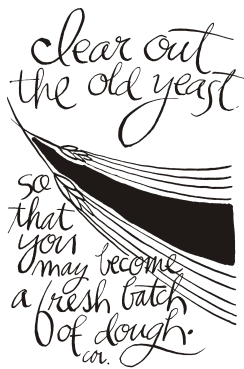 clear out
the old yeast
so
that
you
may become
a fresh batch
of dough.
cor.